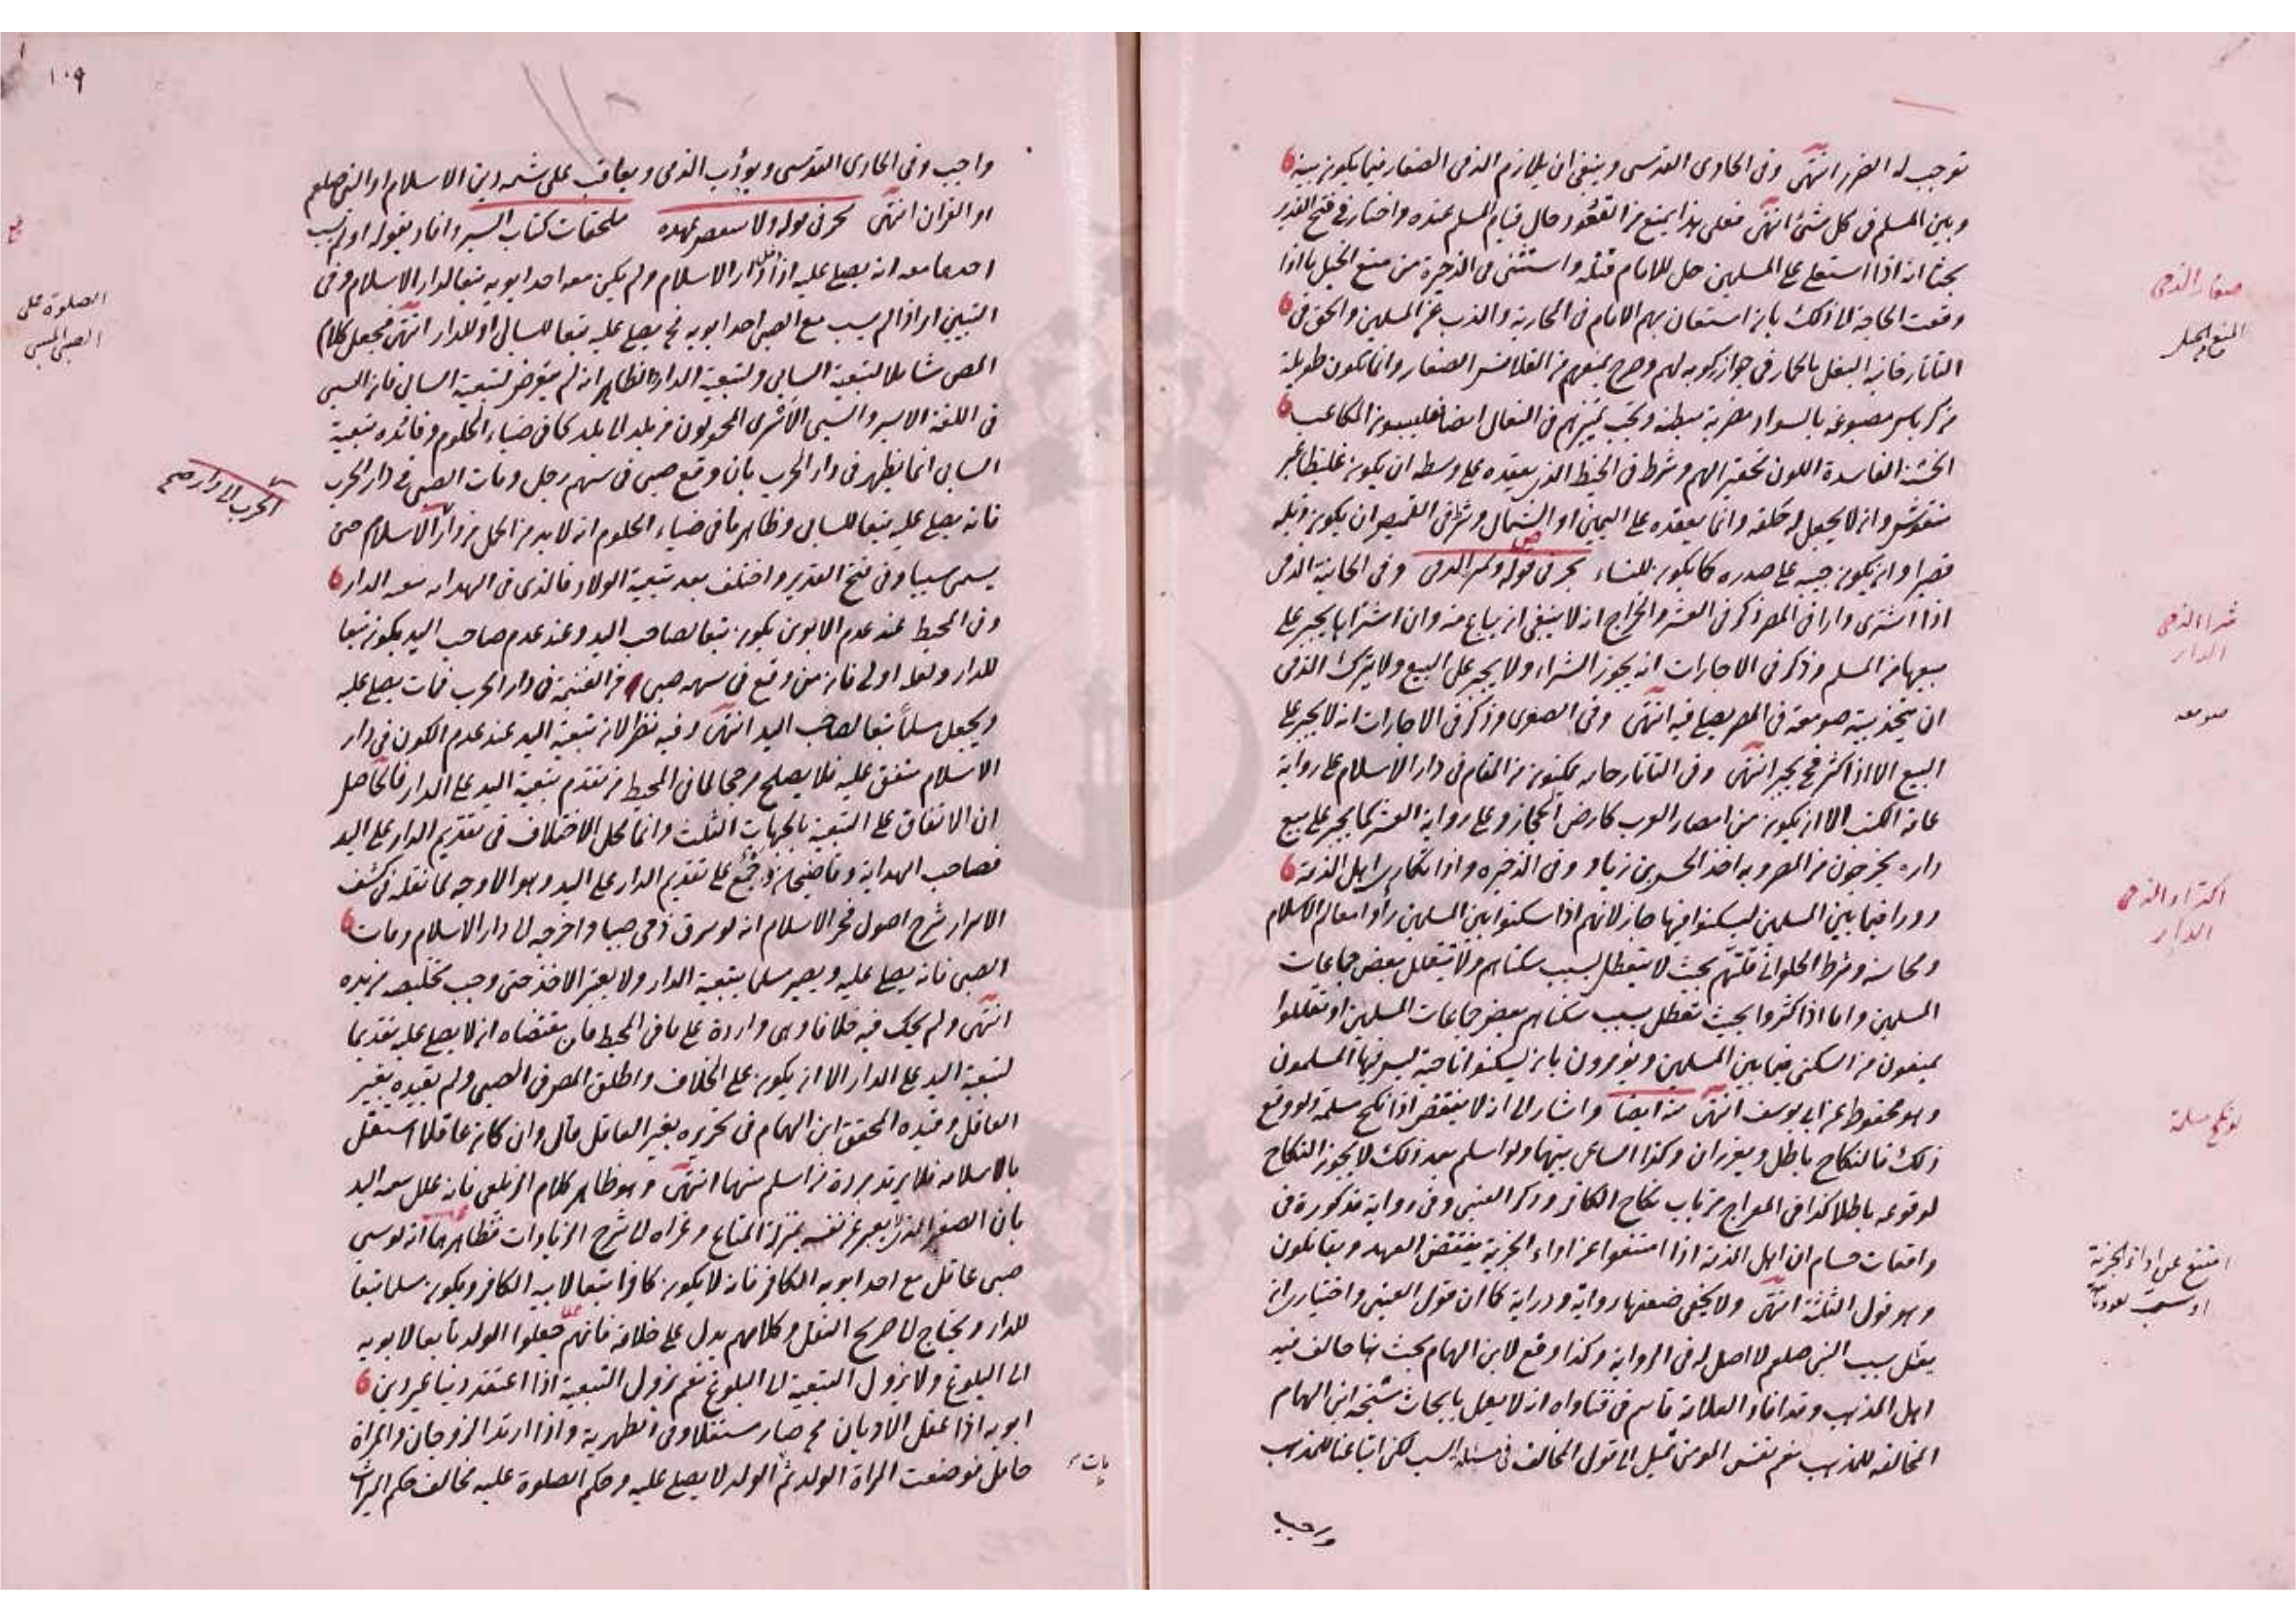 توجب له الضرر انتهى وفى الحاوى القدسى وينبغى ان يلازم الذمى الصغار فيما يكون بينه
وبين المسلم فى كل شئ انتهى فعلى هذا يمنع من القعود حال قيام المسلم عنده واختار فى فتح القدير
بحثا انه اذا استعلى على المسلمين حل للامام قتله واستثنى فى الذخيرة من منع الخيل ما اذا
وقعت الحاجة الى ذلك بان استعان بهم الامام فى المحاربة والذب عن المسلمين والحق فى
التاتارخانية البغل بالحمار فى جواز ركوبه لهم وصرح بمنعهم من القلانس الصغار وانما تكون طويلة
من كرباس مصبوغة بالسواد مضربة مبطنة ويجب تمييزهم فى النعال ايضا فيلبسون المكاعب
الخشنة الفاسدة اللون تحقيرا لهم وشرط فى الخيط الذى يعقده على وسطه ان يكون غليظا غير
منقوش وان لا يجعل له حلقة وانما يعقده على اليمين او الشمال وشرط فى القميص ان يكون ذيله
قصيرا وان يكون جيبه على صدره كما يكون للنساء بحر فى قوله الذمى وفى الخانية الذمى
اذا اشترى دارا فى المصر ذكر فى العشر والخراج انه لا ينبغى ان يباع منه وان اشتراها يجبر على
بيعها من المسلم وذكر فى الاجارات انه يجوز الشراء ولا يجبر على البيع ولا يترك الذمى
ان يتخذ بيته صومعة فى المصر يصلى فيه انتهى وفى الصغرى وذكر فى الاجارات انه لا يجبر على
البيع الا اذا كثر فح يجبر انتهى وفى التاتارخانيه يمكنون من المقام فى دار الاسلام على رواية
عامة الكتب الا ان يكون من امصار العرب كارض الحجاز وعلى رواية العشر كما يجبر على بيع
داره يخرجون من المصر وبه اخذ الحسن بن زياد وفى الذخيره واذا تكارى اهل الذمة
دورا فيما بين المسلمين ليسكنوا فيها جاز لانهم اذا سكنوا بين المسلمين رأوا معالم الاسلام
ومحاسنه وشرط الحلوانى قلتهم بحيث لا يتعطل بسبب سكناهم ولا يتقلل بعض جماعات
المسلمين واما اذا كثروا بحيث تعطل بسبب سكناهم بعض جماعات المسلمين او تقللوا
يمنعون من السكنى فيما بين المسلمين ويؤمرون بان يسكنوا ناحية ليس فيها المسلمون
وهو محفوظ عن ابى يوسف انتهى منه ايضا واشار الى انه لا ينتقض اذا نكح مسلمة ولو وقع
ذلك فالنكاح باطل ويعزران وكذا الساعى بينهما ولو اسلم بعد ذلك لا يجوز النكاح
لوقوعه باطلا كذا فى المعراج من باب نكاح الكافر وذكر العينى وفى رواية مذكورة فى
واقعات حسام ان اهل الذمة اذا امتنعوا عن اداء الجزية ينتقض العهد ويقاتلون
وهو قول الثلثة انتهى ولا يخفى ضعفها رواية ودراية كما ان قول العينى واختيارى ان
يقتل بسب النبى صلعم لا اصل له فى الرواية وكذا وقع لابن الهمام بحث هنا خالف فيه
اهل المذهب وقد افاد العلامة قاسم فى فتاواه انه لا يعمل بابحاث شيخه ابن الهمام
المخالفة للمذهب نعم نفس المؤمن تميل الى قول المخالف فى مسئلة السب لكن اتباعنا للمذهب
واجب
صغار الذمى
شراء الذمى
الدار
صومعه
اكتراء الذمى
الدار
لو نكح مسلمة
امتنع عن اداء الجزية
١٠٩
واجب وفى الحاوى القدسى ويؤدب الذمى ويعاقب على شتمه دين الاسلام او النبى صلعم
او القران انتهى بحر فى قوله ولا ينتقض عهده ملحقات كتاب السير وافاد بقوله او لم يسب
احدهما معه انه يصلى عليه اذا دخل دار الاسلام ولم يكن معه احد ابويه تبعا لدار الاسلام وفى
التبيين اى اذا لم يسب مع الصبى احد ابويه فح يصلى عليه تبعا للسابى او للدار انتهى فجعل كلام
المص شاملا لتبعية السابى ولتبعية الدار والظاهر انه لم يتعرض لتبعية السابى فان السبى
فى اللغة الاسير والسبى الاسرى المحولون من بلد الى بلد كما فى ضياء الحلوم وفائدة تبعية
السابى انما يظهر فى دار الحرب بان وقع صبى فى سهم رجل ومات الصبى فى دار الحرب
فانه يصلى عليه تبعا للسابى وظاهر ما فى ضياء الحلوم انه لا بد من الحمل من دار الاسلام حتى
يسمى سبيا وفى فتح القدير واختلف بعد تبعية الولاد فالذى فى الهداية تبعية الدار
وفى المحيط عند عدم الابوين يكون تبعا لصاحب اليد وعند عدم صاحب اليد يكون تبعا
للدار ولعله اولى فان من وقع فى سهمه صبى من الغنيمة فى دار الحرب فمات يصلى عليه
ويجعل مسلما تبعا لصاحب اليد انتهى وفيه نظر لان تبعية اليد عند عدم الكون فى دار
الاسلام متفق عليه فلا يصلح مرجحا لما فى المحيط من تقدم تبعية اليد على الدار فالحاصل
ان الاتفاق على التبعية بالجهات الثلث وانما محل الاختلاف فى تقديم الدار على اليد
فصاحب الهداية وقاضيخان وجمع على تقديم الدار على اليد وهو الاوجه لما نقله فى كشف
الاسرار شرح اصول فخر الاسلام انه لو سرق ذمى صبيا واخرجه الى دار الاسلام ومات
الصبى فانه يصلى عليه ويصير مسلما بتبعية الدار ولا يعتبر الاخذ حتى وجب تخليصه من يده
انتهى ولم يحك فيه خلافا وهى واردة على ما فى المحيط فان مقتضاه ان لا يصلى عليه تقديما
لتبعية اليد على الدار الا ان يكون على الخلاف واطلق المص فى الصبى ولم يقيده بغير
العاقل وقيده المحقق ابن الهمام فى تحريره بغير العاقل قال وان كان عاقلا استقل
بالاسلامه فلا يرتد بردة من اسلم منهما انتهى وهو ظاهر كلام الزيلعى فانه علل تبعية اليد
بان الصغير الذى لا يعبر عن نفسه بمنزلة المتاع وعزاه الى شرح الزيادات فظاهرهما انه لو سبى
صبى عاقل مع احد ابويه الكافر فانه لا يكون كافرا تبعا لابيه الكافر ويكون مسلما تبعا
للدار ويحتاج الى صريح النقل وكلامهم يدل على خلافه فانهم جعلوا الولد تابعا لابويه
الى البلوغ ولا يزول التبعية الى البلوغ نعم يزول التبعية اذا اعتقد دينا غير دين
ابويه اذا عقل الاديان فح صار مستقلا وفى الظهرية واذا ارتد الزوجان والمراة
حامل فوضعت المراة الولد ثم الولد لا يصلى عليه وحكم الصلوة عليه مخالف حكم الميراث
الصلوة على
الصبى المسبى
الحرب الى دار صح
مات